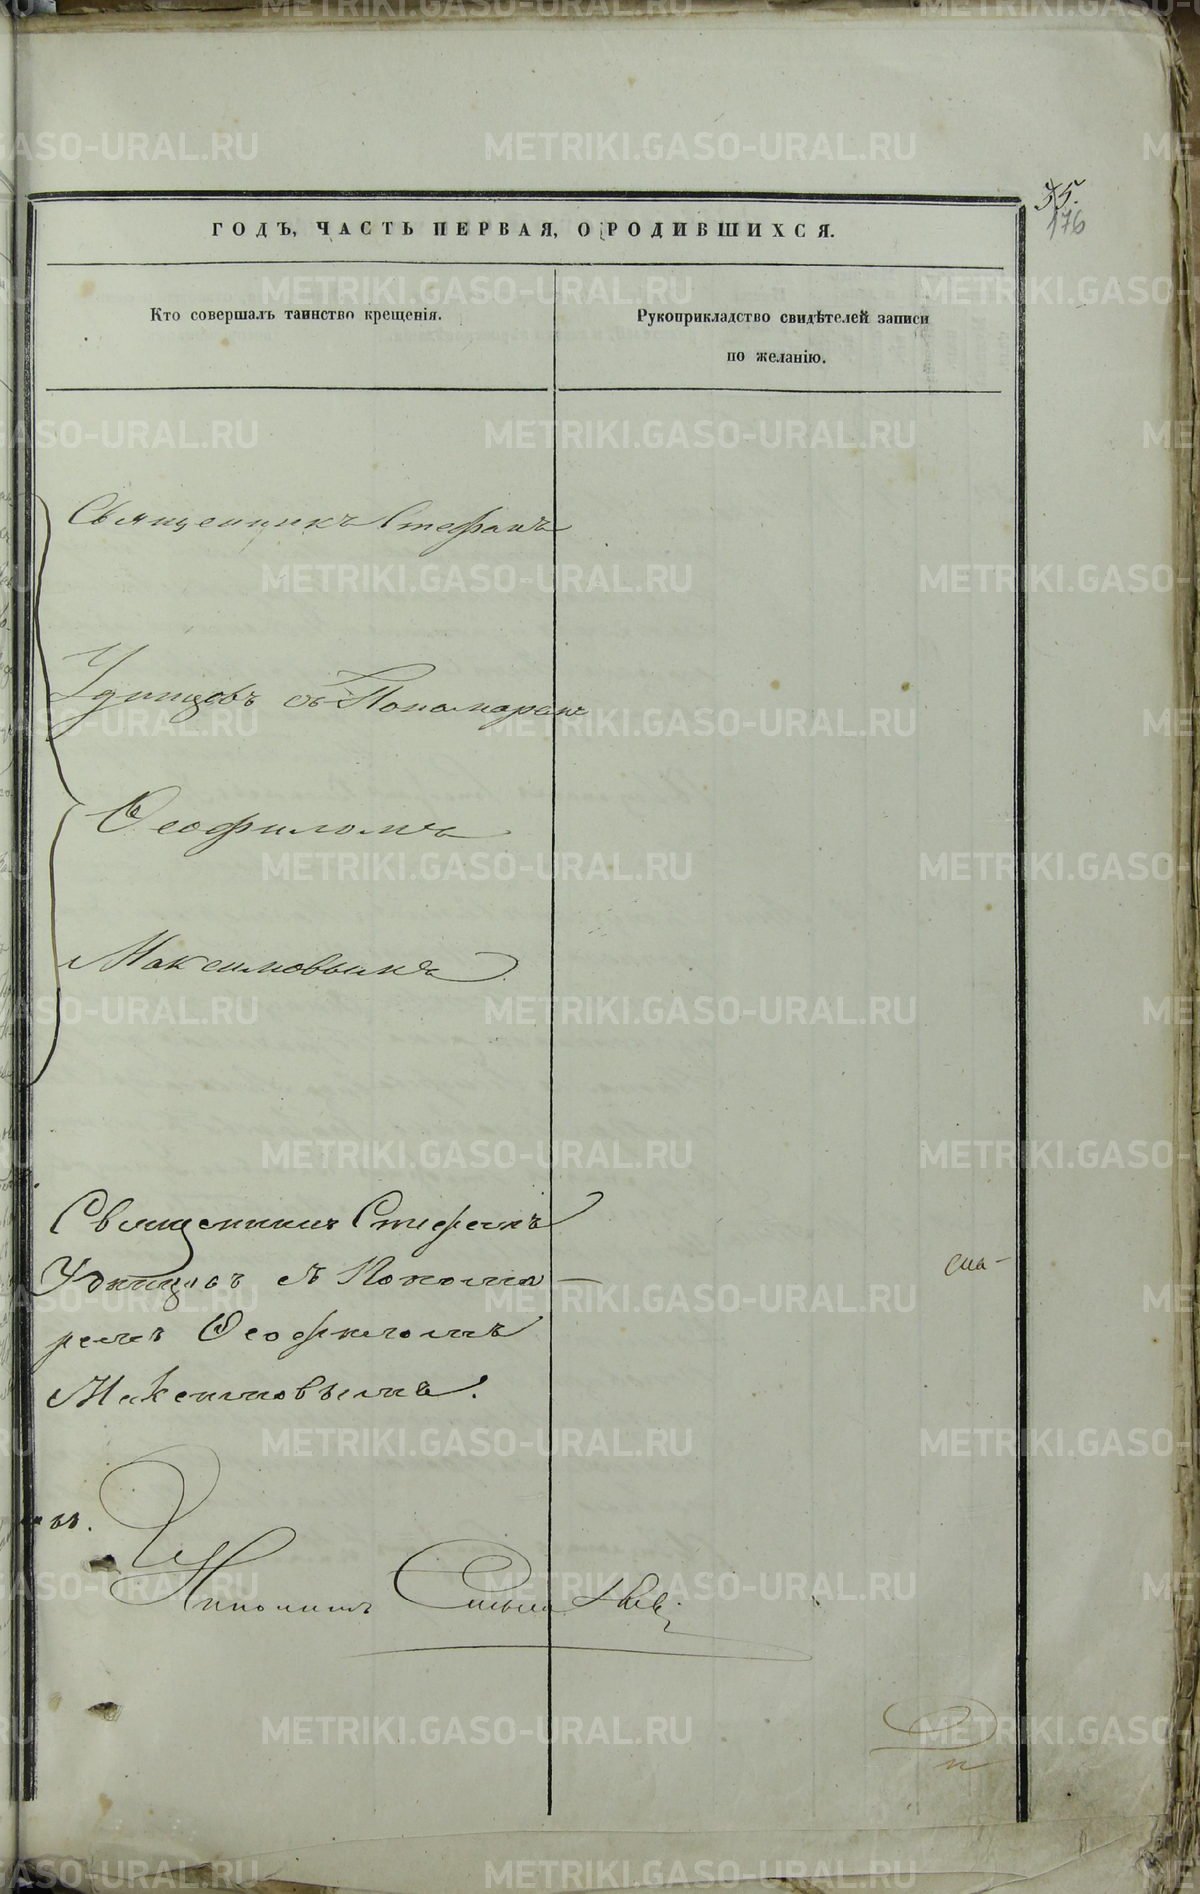 35.
176
ГОДЪ, ЧАСТЬ ПЕРВАЯ, О РОДИВШИХСЯ.
Кто совершалъ таинство крещенія.
Рукоприкладство свидѣтелей записи
по желанію.
Священникъ Стефанъ
Удинцовъ съ Пономаремъ
Ѳеофиломъ
Максимовымъ
Священникъ Стефанъ
Удинцовъ съ Понома-
ремъ Ѳеофиломъ
Максимовымъ.
METRIKI.GASO-URAL.RU